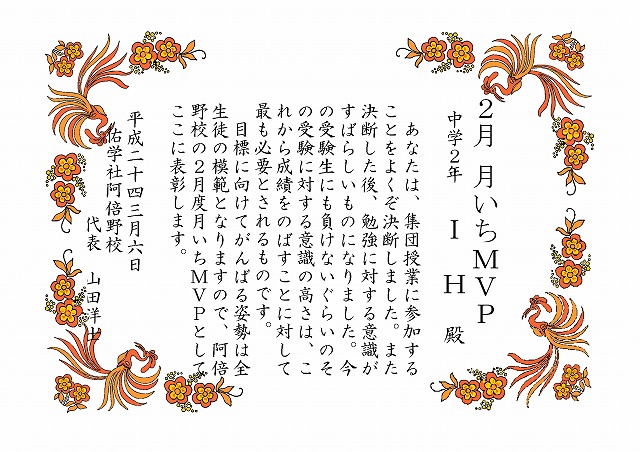 2月 月いちMVP
中学2年 I H 殿
あなたは、集団授業に参加する
ことをよくぞ決断しました。また
決断した後、勉強に対する意識が
すばらしいものになりました。今
の受験生にも負けないぐらいのそ
の受験に対する意識の高さは、こ
れから成績をのばすことに対して
最も必要とされるものです。
目標に向けてがんばる姿勢は全
生徒の模範となりますので、阿倍
野校の2月度月いちMVPとして
ここに表彰します。
平成二十四三月六日
佑学社阿倍野校
代表 山田洋士